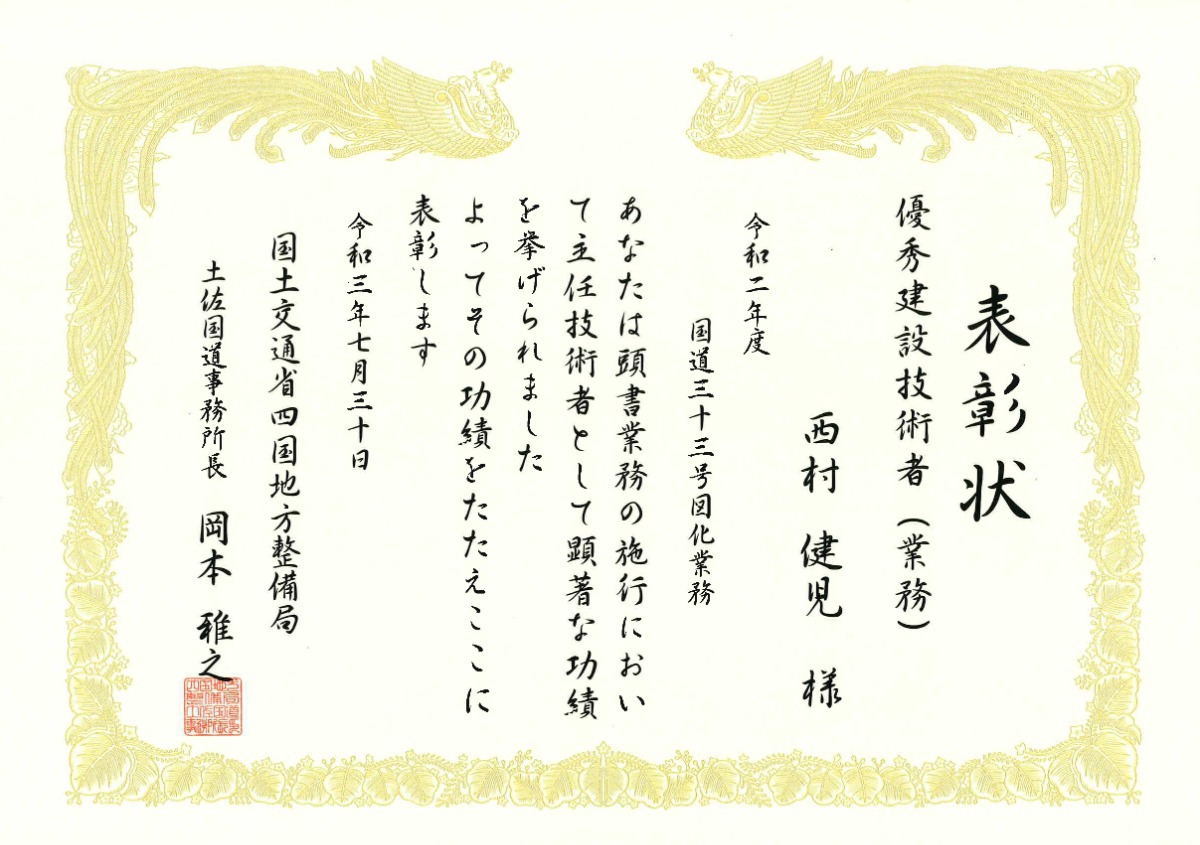 表彰状
優秀建設技術者(業務)
西村 健児 様
令和二年度
国道三十三号図化業務
あなたは頭書業務の施行におい
て主任技術者として顕著な功績
を挙げられました
よってその功績をたたえここに
表彰します
令和三年七月三十日
国土交通省四国地方整備局
土佐国道事務所長 岡本 雅之